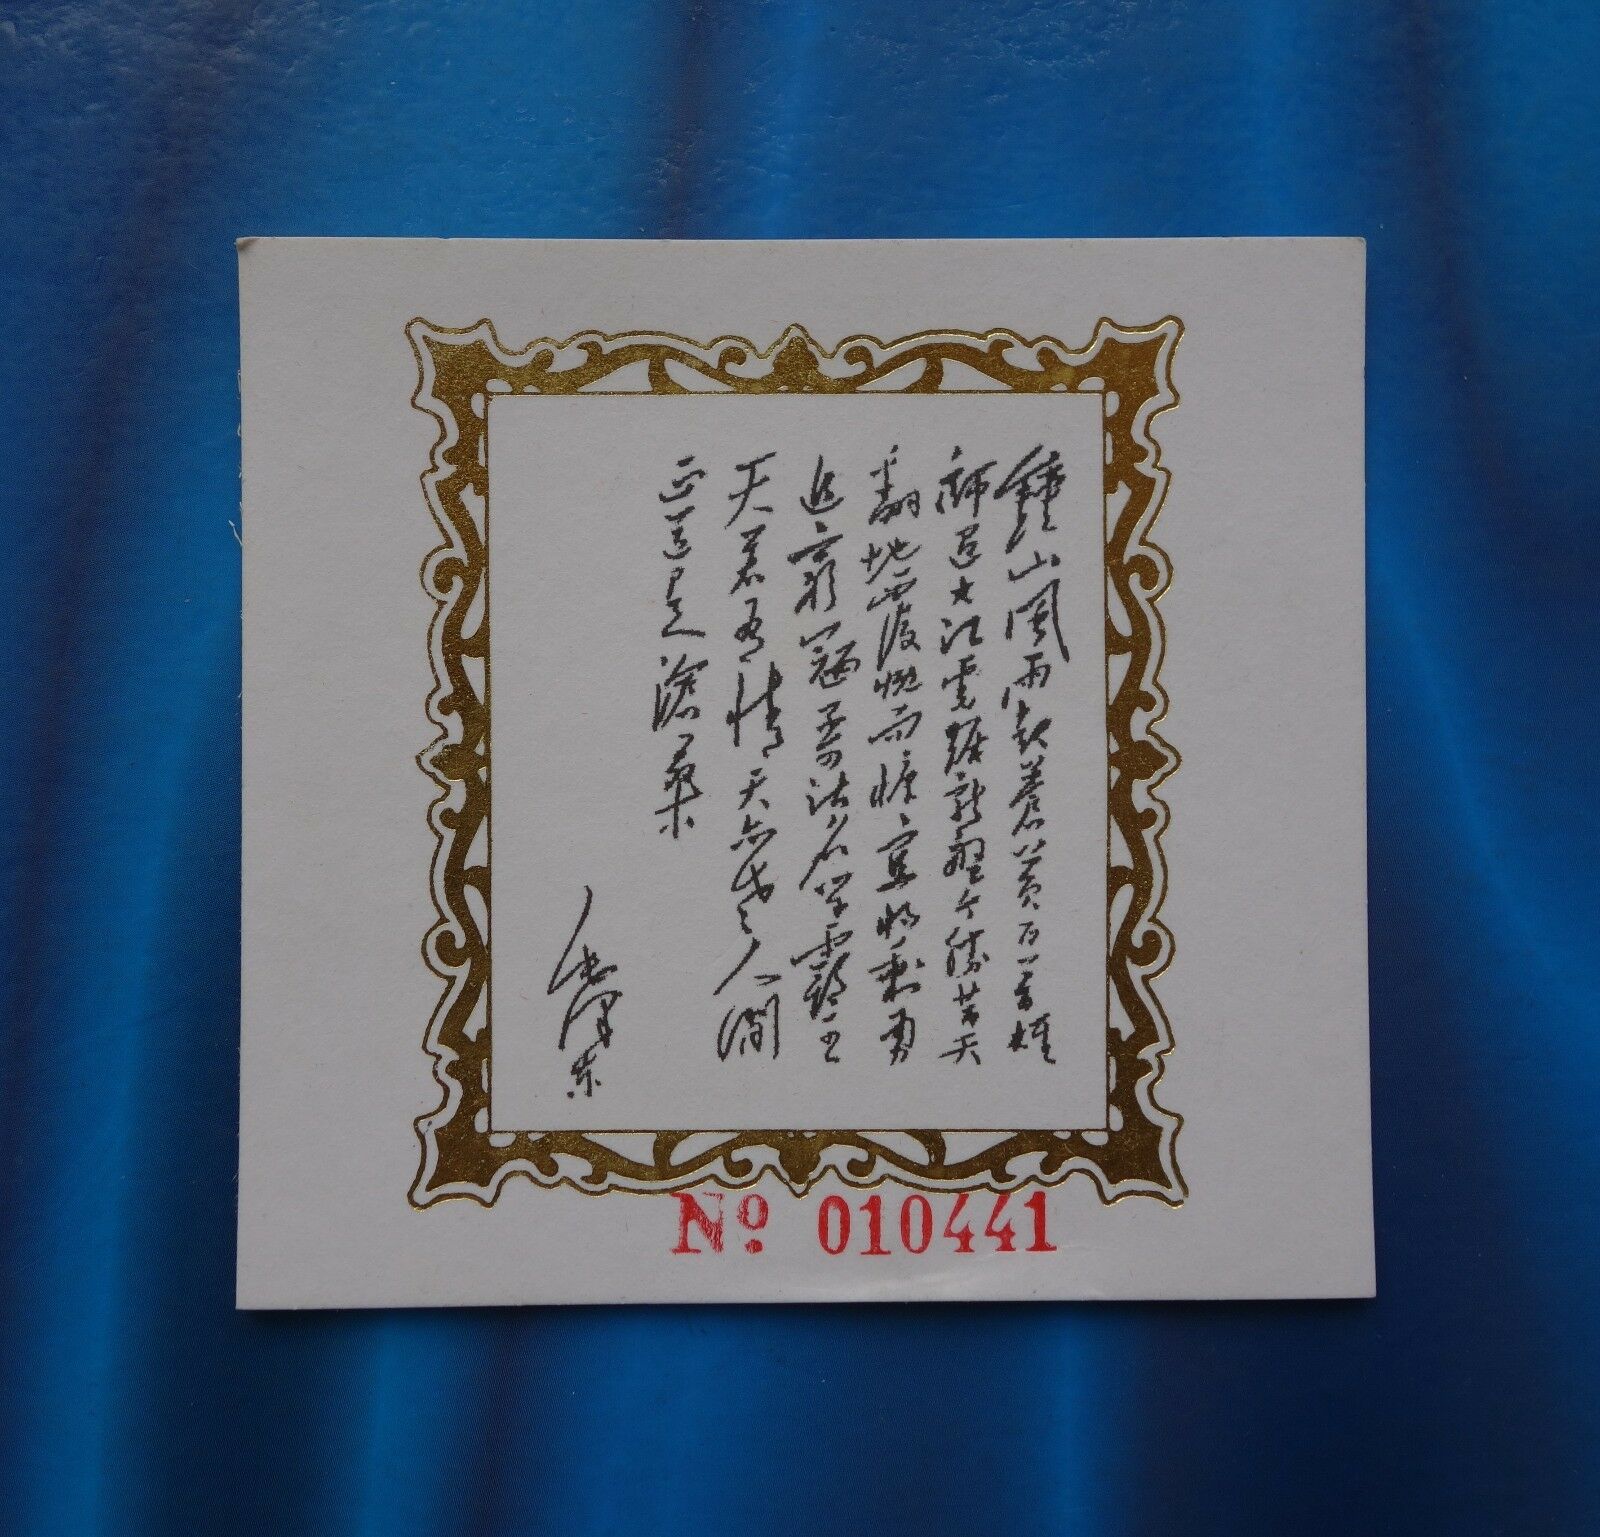 鐘山風雨起蒼黃百万雄
師過大江虎踞龍盤今勝昔天
翻地覆慨而慷宜將剩勇
追窮寇不可沽名學霸王
天若有情天亦老人間
正道是滄桑
毛澤东
№ 010441